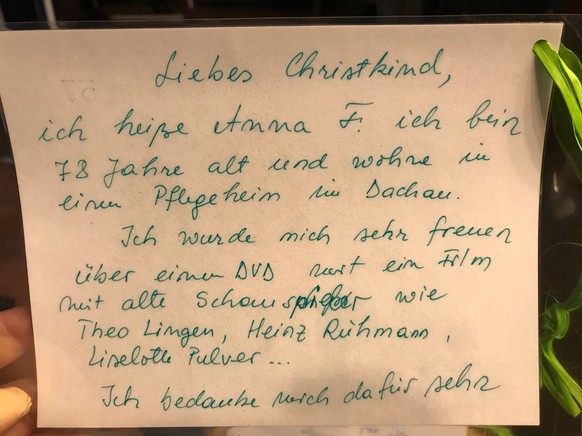 Liebes Christkind,
ich heiße Anna F. ich bein
78 Jahre alt und wohne in
einem Pflegeheim im Dachau.
Ich wurde mich sehr freuen
über einen DVD mit ein Film
mit alte Schauspieler wie
Theo Lingen, Heinz Rühmann,
Liselotte Pulver...
Ich bedanke mich dafür sehr